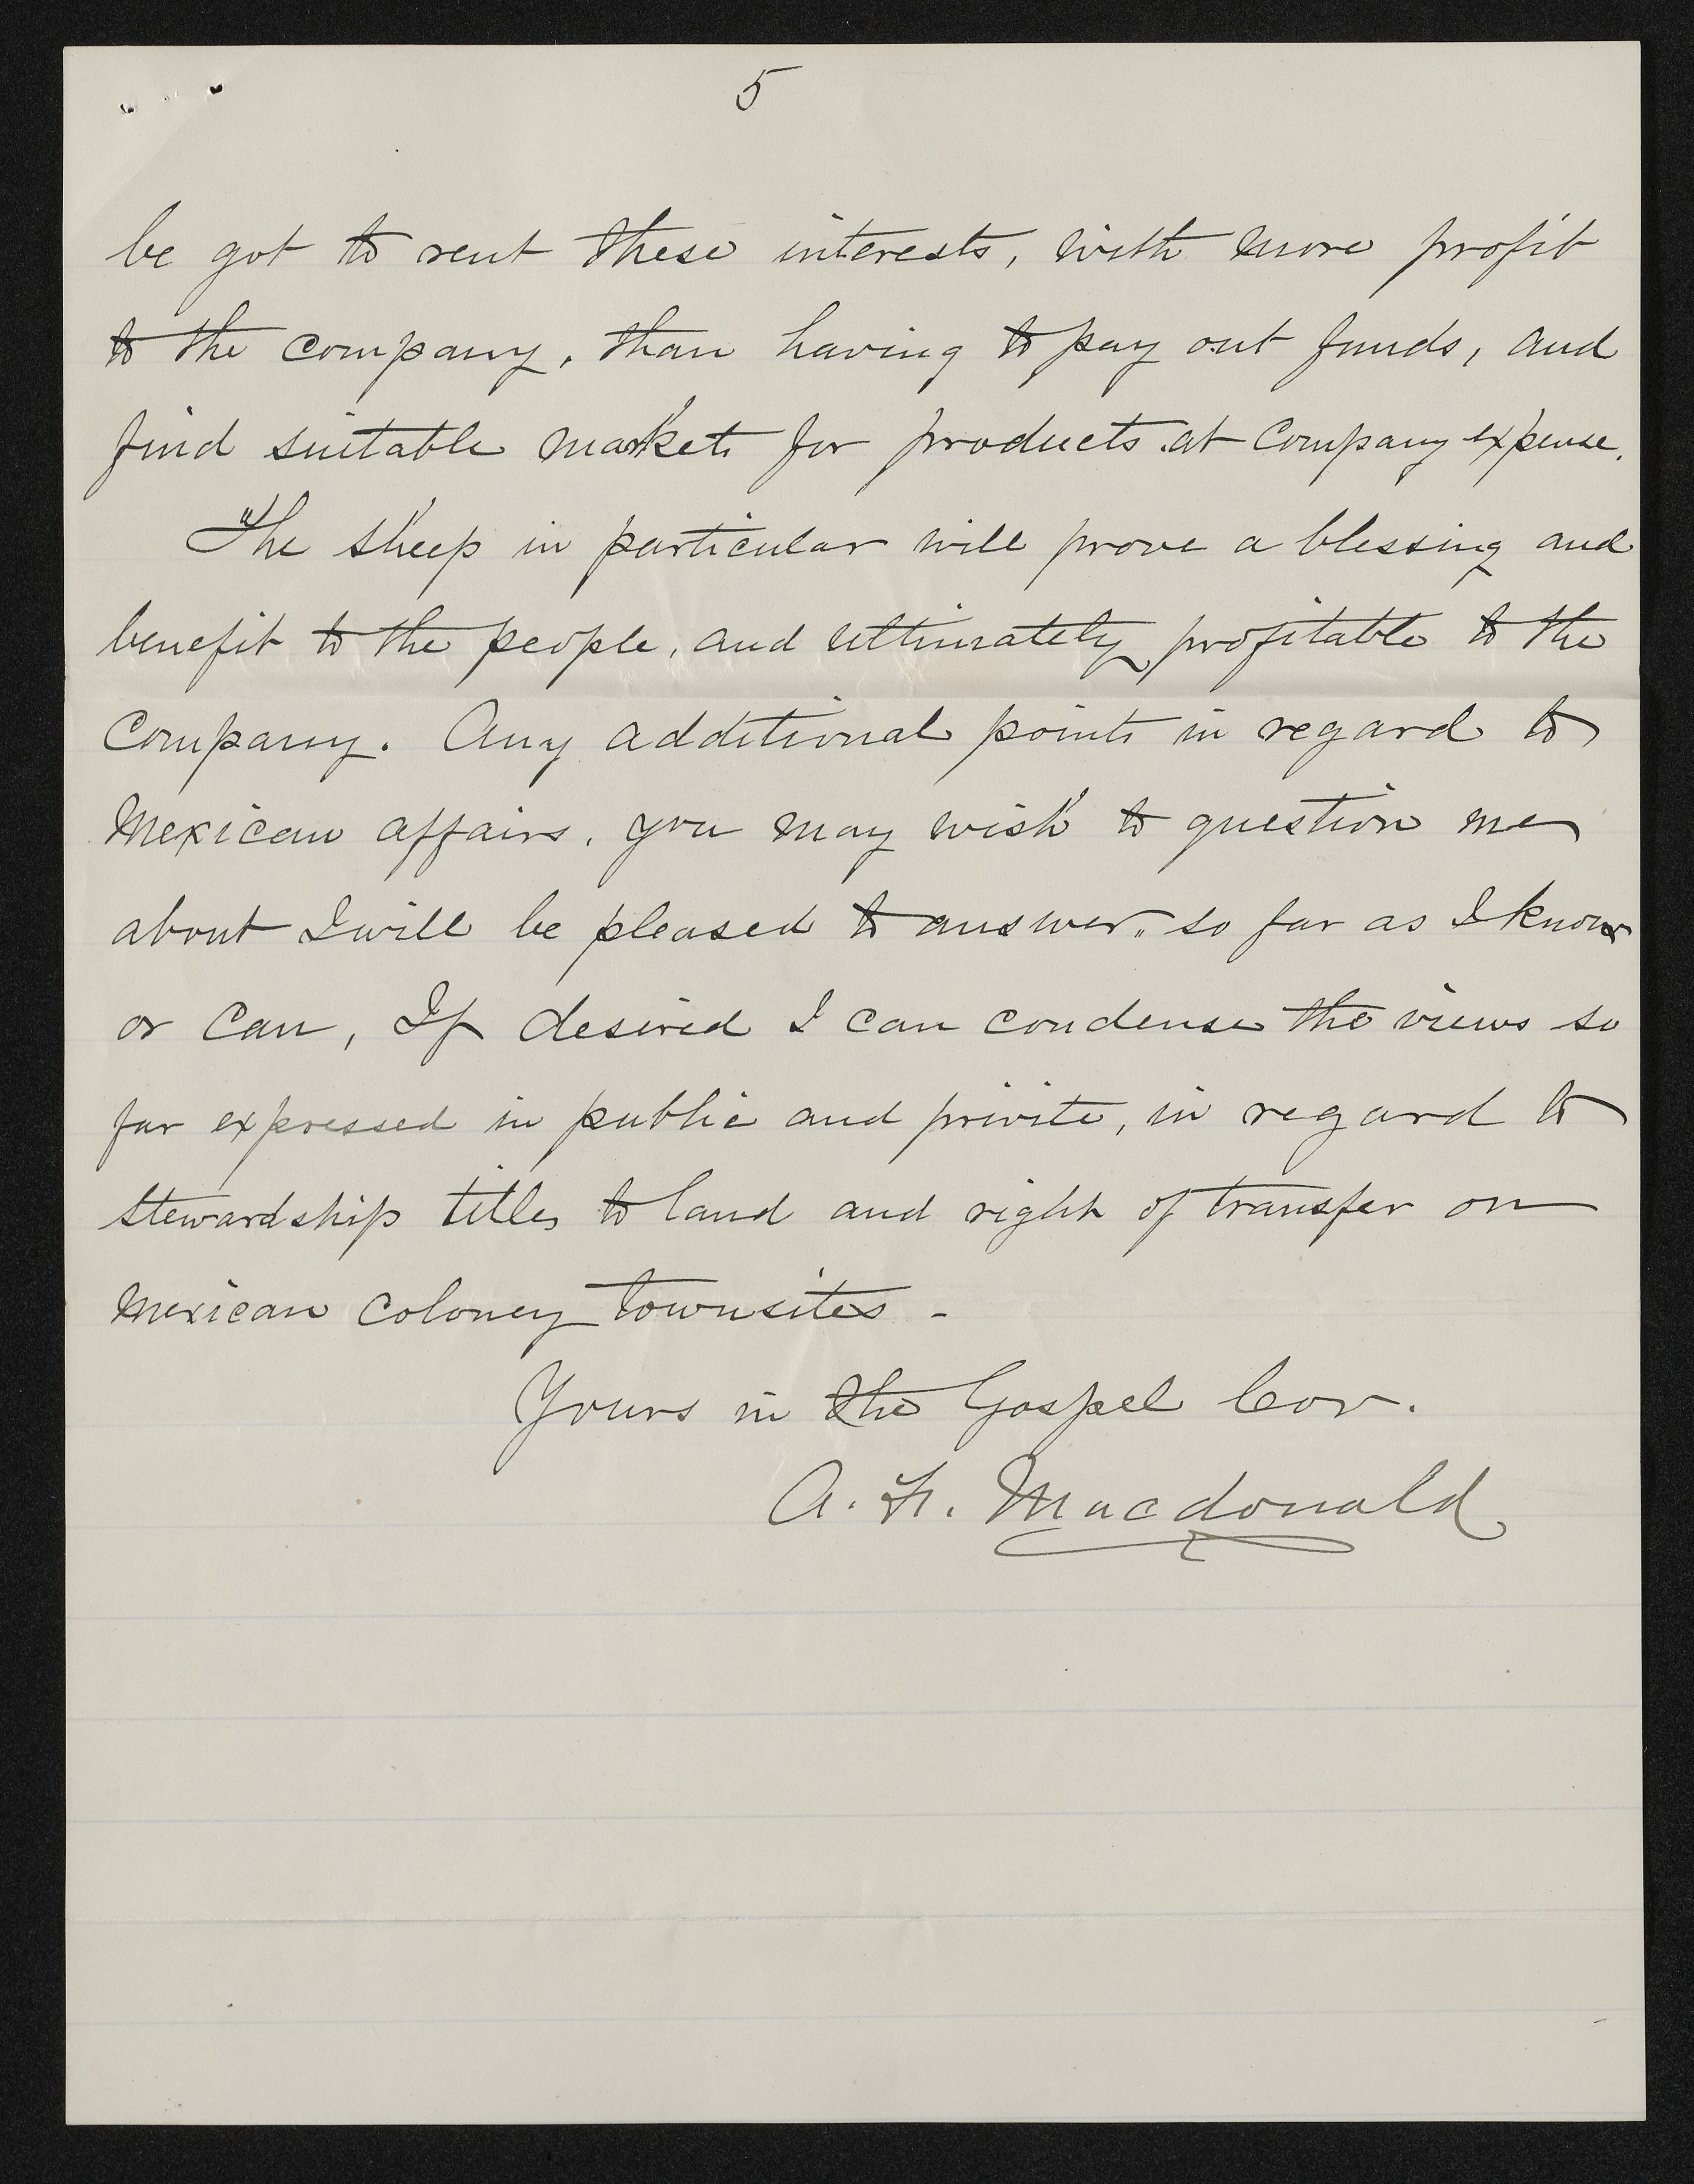 5
be got to rent these interests, with more profit
to the company, than having to pay out funds, and
find suitable markets for products at Company expense.
The sheep in particular will prove a blessing and
benefit to the people, and ultimately profitable to the
Company. Any additional points in regard to
Mexican affairs, you may wish to question me
about I will be pleased to answer, so far as I know
or can, If desired I can condense the views so
far expressed in public and privite, in regard to
stewardship titles to land and right of transfer on
Mexican coloney townsites -
Yours in the Gospel Cov.
A. F. Macdonald